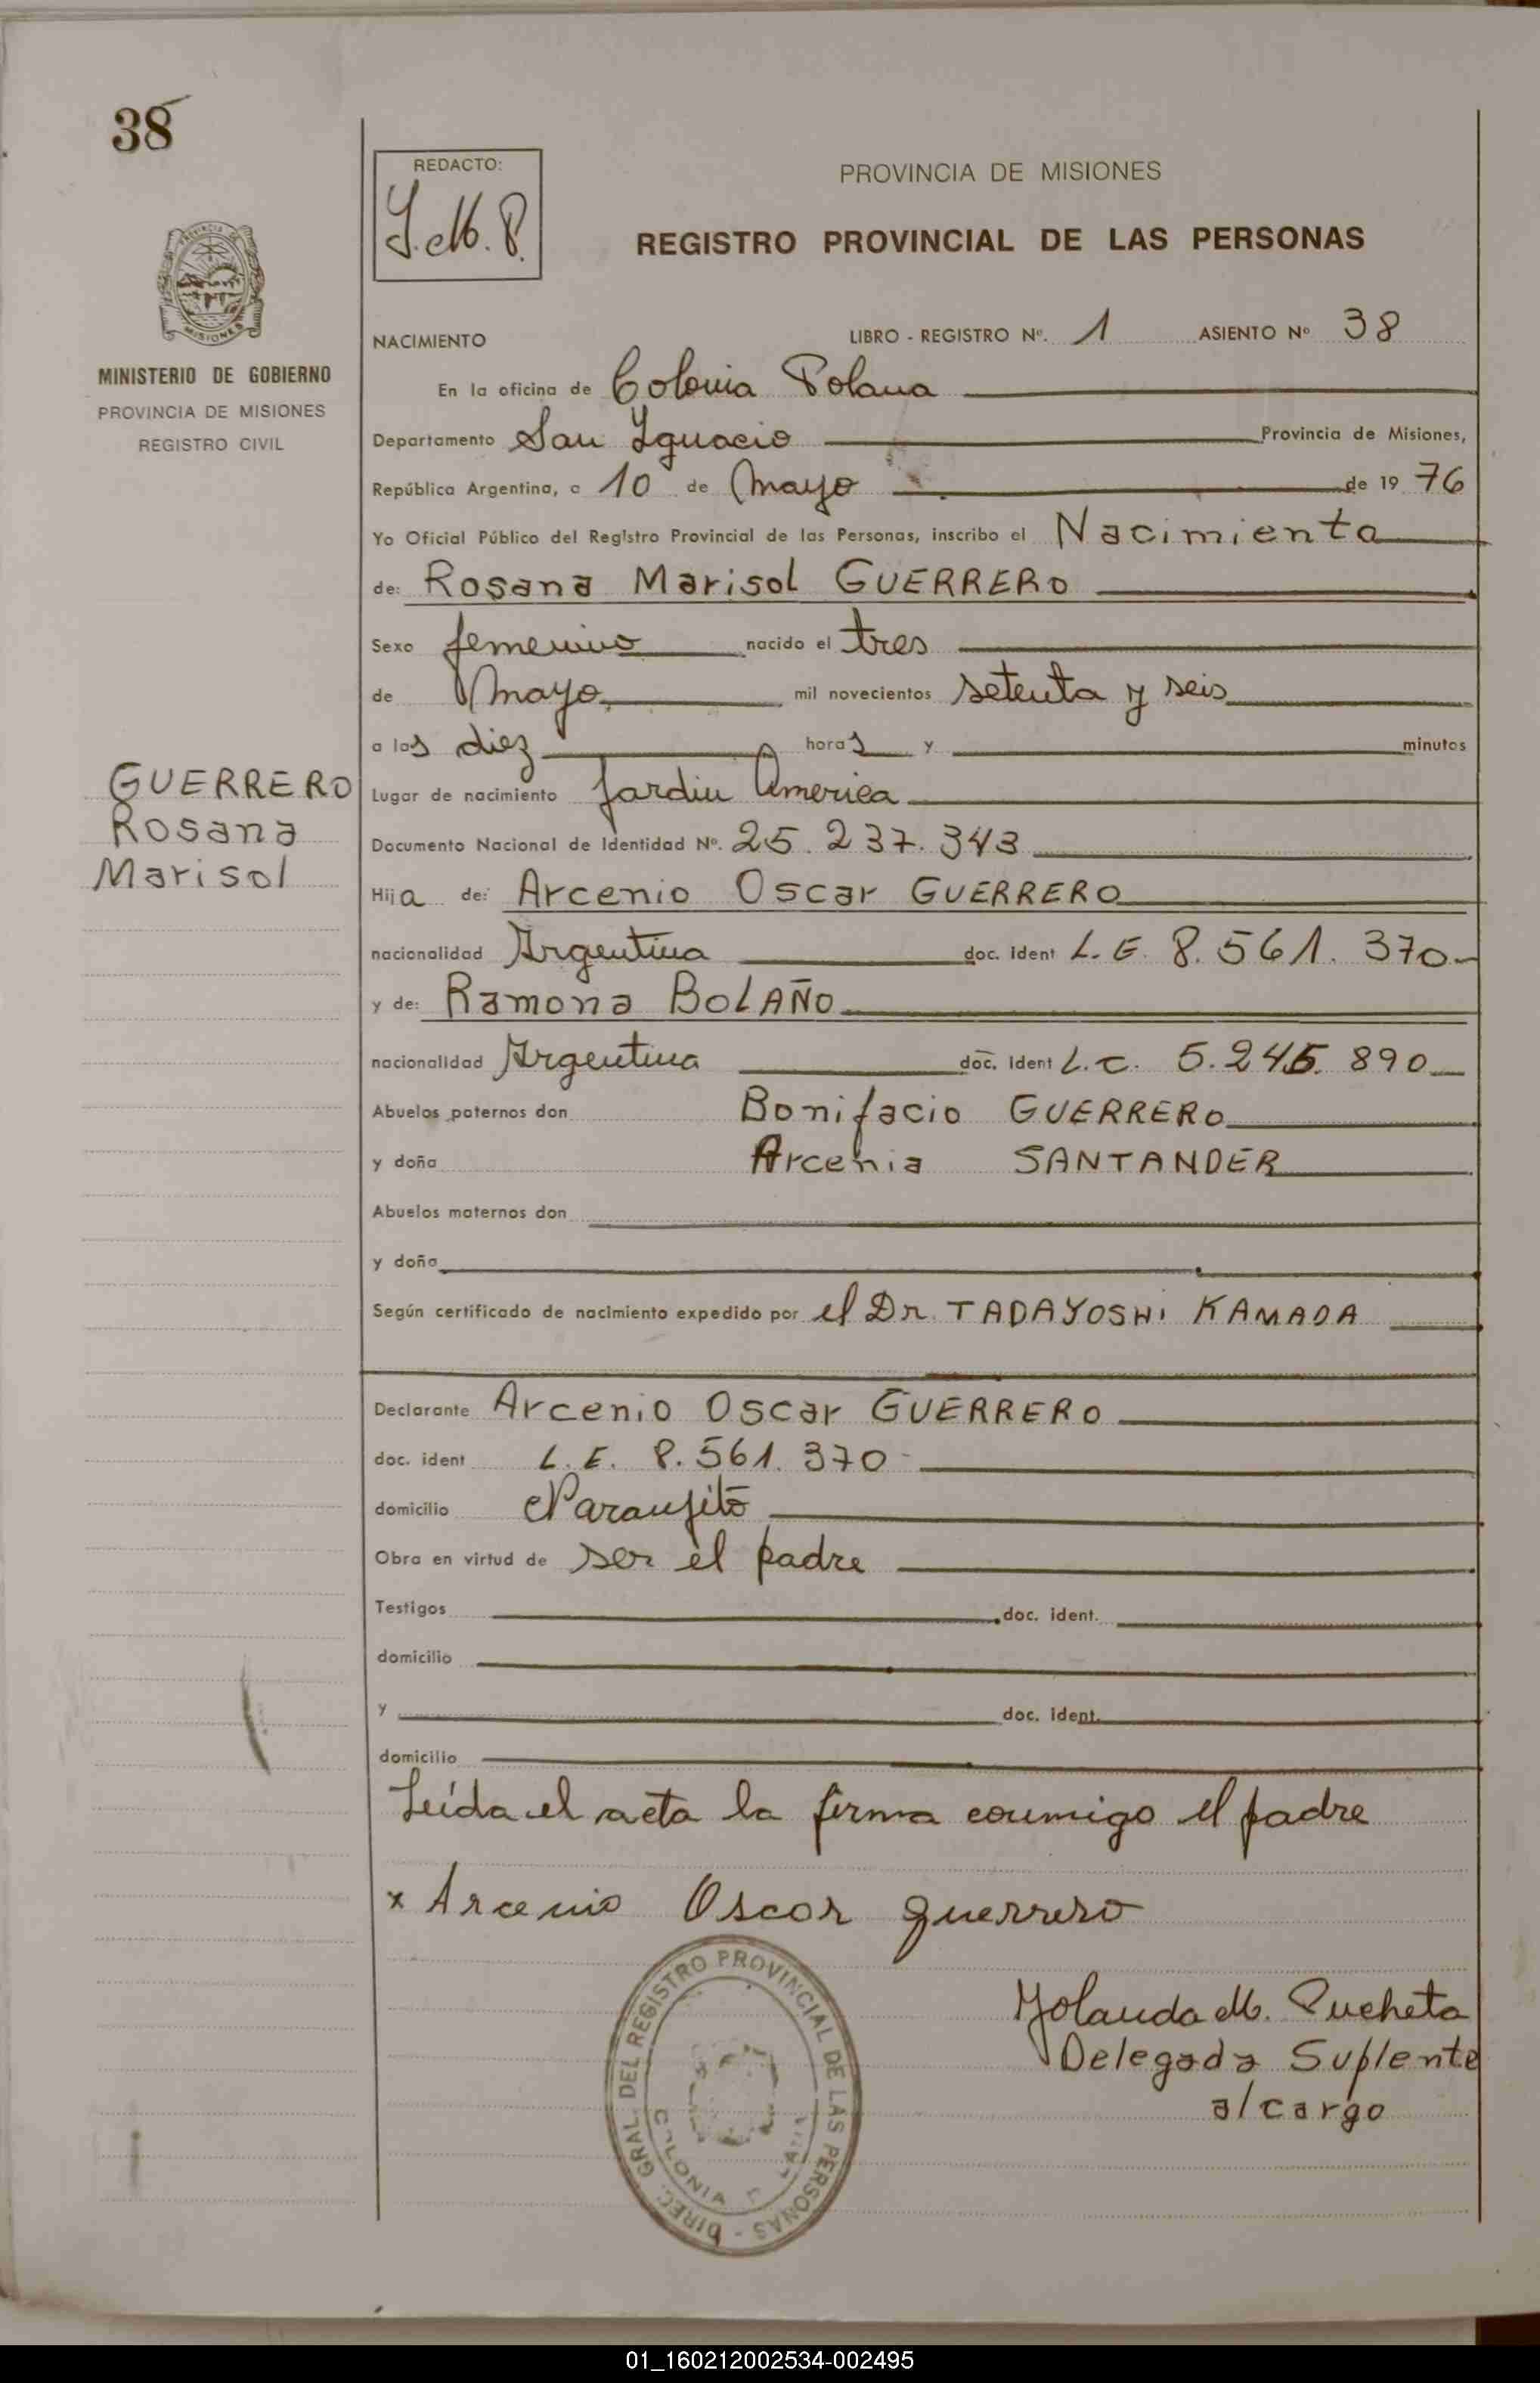 38
REDACTO:
Y.M.P.
PROVINCIA DE MISIONES
REGISTRO PROVINCIAL DE LAS PERSONAS
MINISTERIO DE GOBIERNO
PROVINCIA DE MISIONES
REGISTRO CIVIL
NACIMIENTO LIBRO - REGISTRO Nº. 1 ASIENTO Nº 38
En la oficina de Colonia Polana
Departamento San Ignacio Provincia de Misiones,
República Argentina, a 10 de Mayo de 19 76
Yo Oficial Público del Registro Provincial de las Personas, inscribo el Nacimiento
de: Rosana Marisol GUERRERO
Sexo femenino nacido el tres
de Mayo mil novecientos setenta y seis
a las diez horas y minutos
GUERRERO
Rosana
Marisol
Lugar de nacimiento Jardin America
Documento Nacional de Identidad Nº. 25.237.343
Hija de: Arcenio Oscar GUERRERO
nacionalidad Argentina doc. ident L.E. 8.561.370-
y de: Ramona BOLAÑO
nacionalidad Argentina doc. ident L.C. 5.245.890
Abuelos paternos don Bonifacio GUERRERO
y doña Arcenia SANTANDER
Abuelos maternos don
y doña
Según certificado de nacimiento expedido por el Dr. TADAYOSHI KAMADA
Declarante Arcenio Oscar GUERRERO
doc. ident L.E. 8.561.370-
domicilio Naranjito
Obra en virtud de ser el padre
Testigos doc. ident.
domicilio
y doc. ident.
domicilio
Leída el acta la firma conmigo el padre
x Arcenio Oscar guerrero
Yolanda M. Pucheta
Delegada Suplente
a/cargo
DIREC. GRAL. DEL REGISTRO PROVINCIAL DE LAS PERSONAS -
COLONIA
01_160212002534-002495